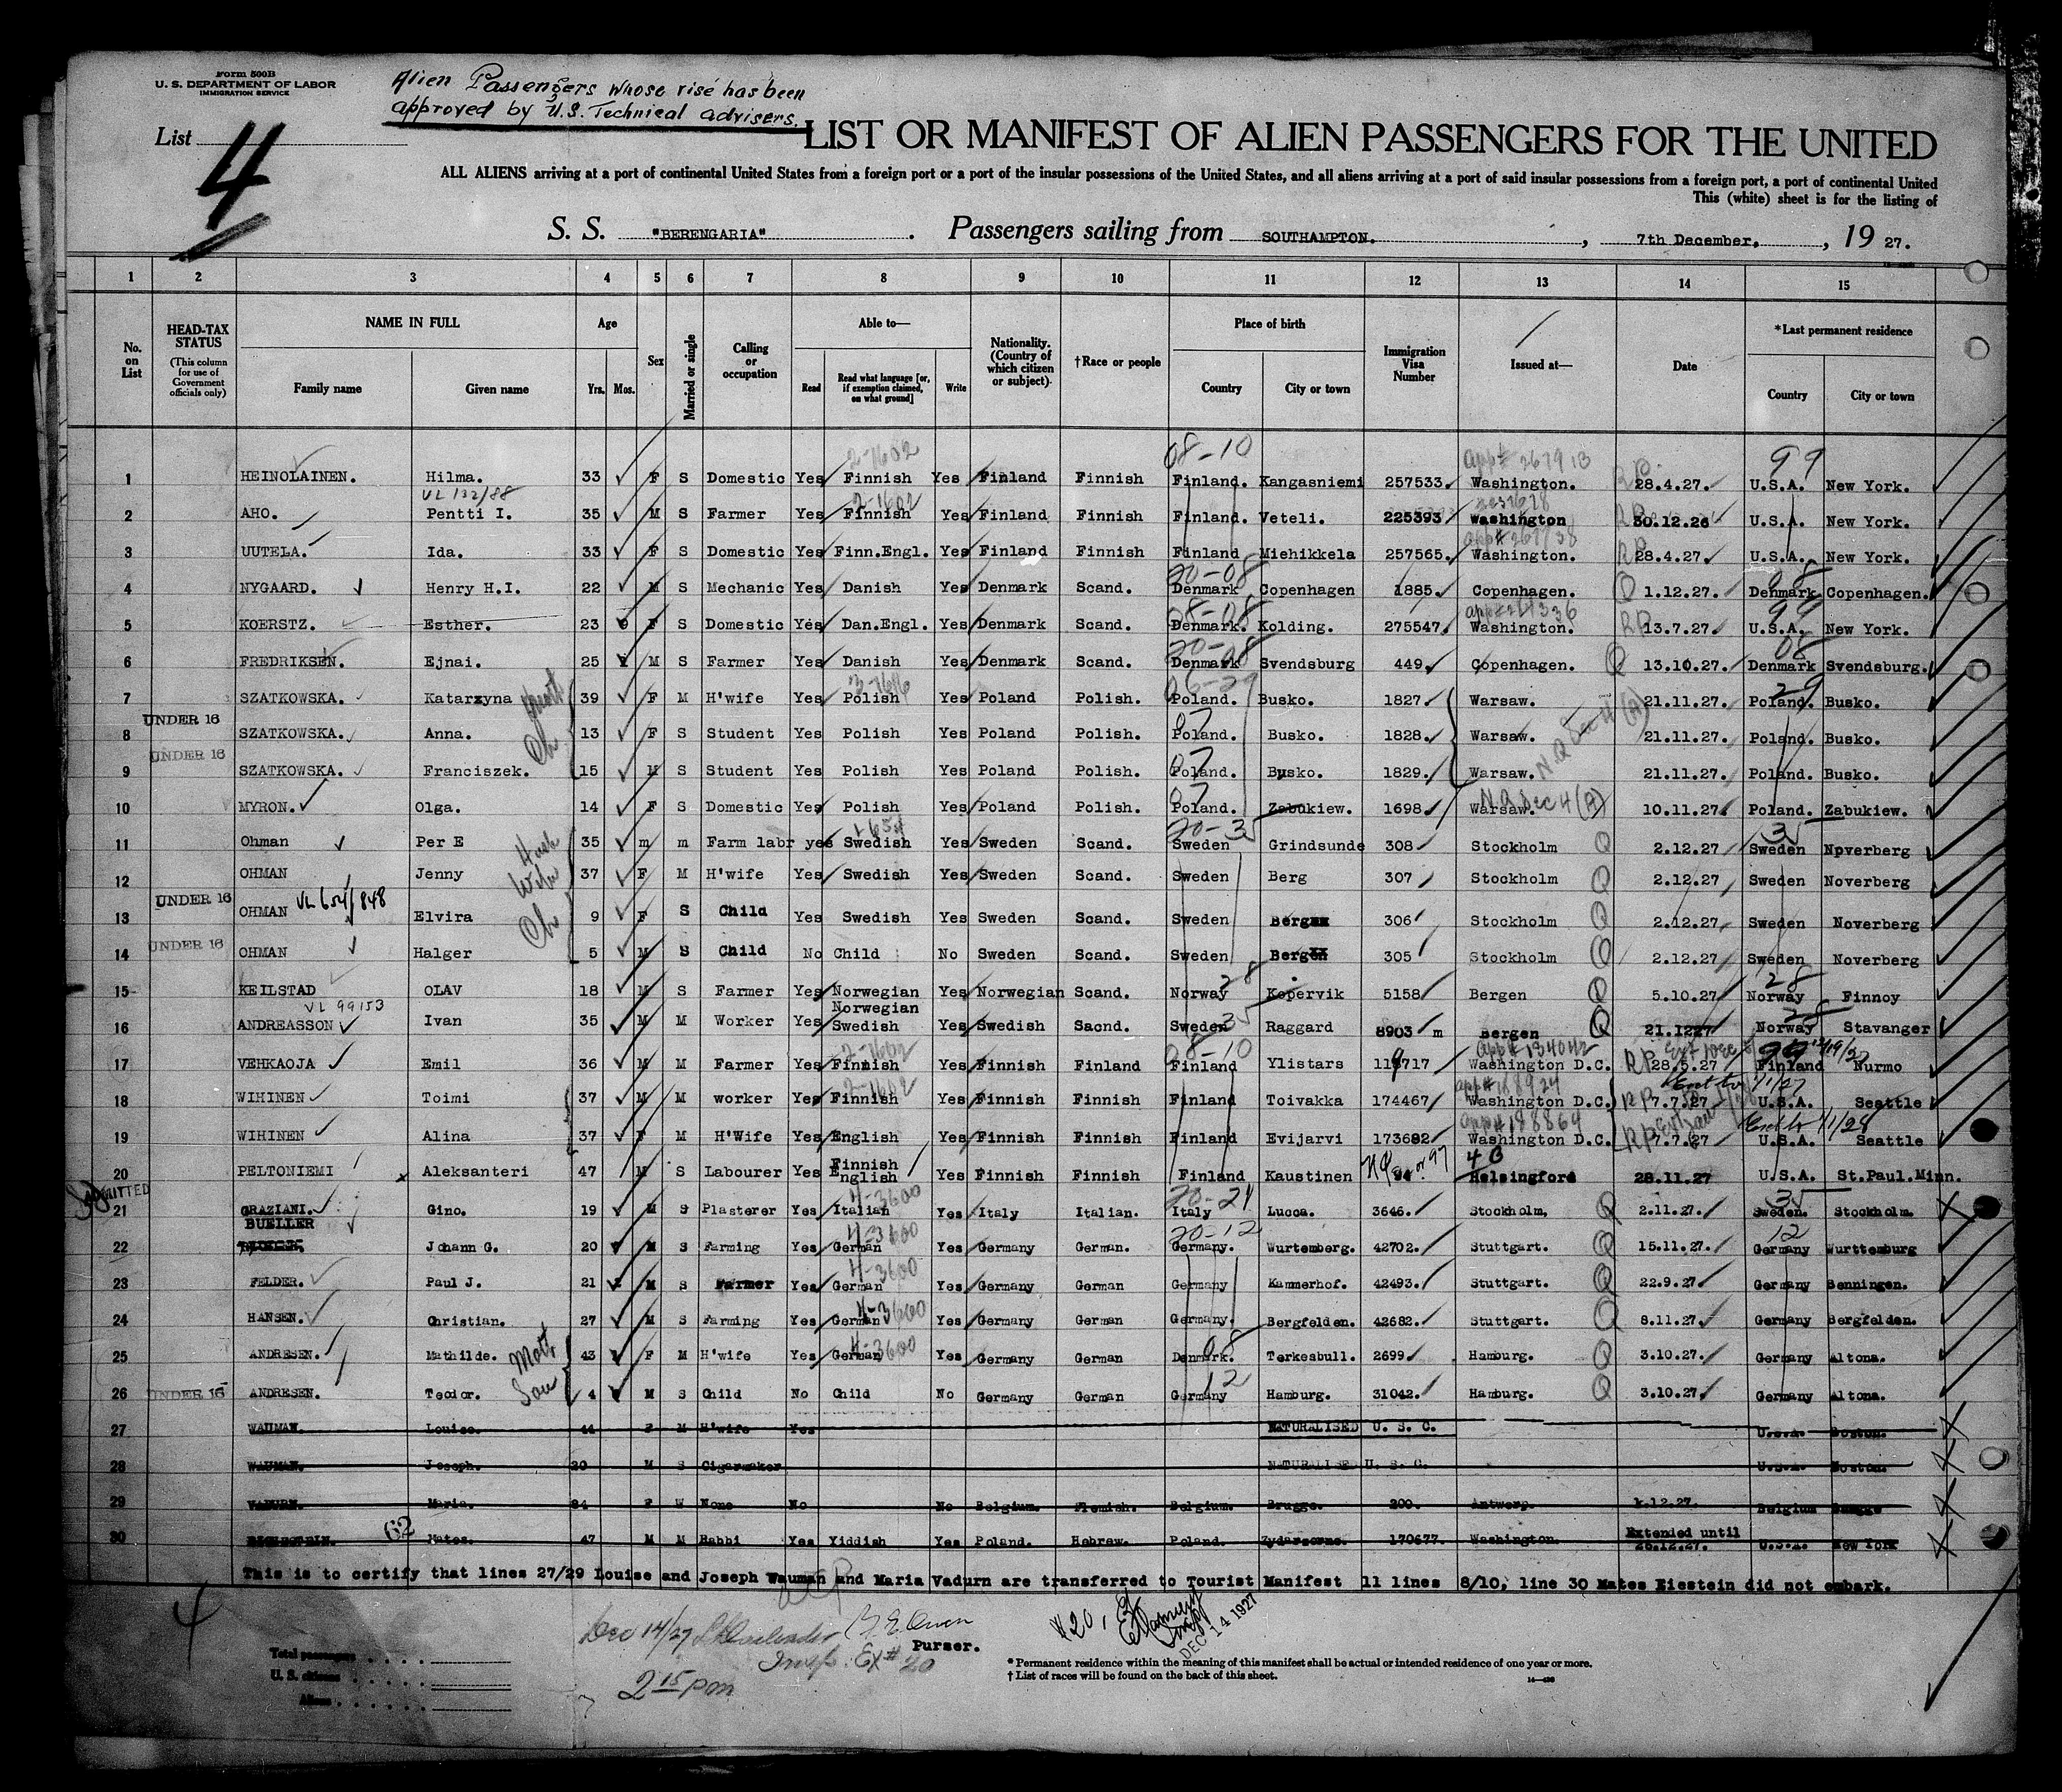 Form 500B
U. S. DEPARTMENT OF LABOR
IMMIGRATION SERVICE
Alien Passengers whose rise has been
approved by U.S. Technical advisers.
List 4
LIST OR MANIFEST OF ALIEN PASSENGERS FOR THE UNITED
ALL ALIENS arriving at a port of continental United States from a foreign port or a port of the insular possessions of the United States, and all aliens arriving at a port of said insular possessions from a foreign port, a port of continental United
This (white) sheet is for the listing of
S. S. "BERENGARIA" . Passengers sailing from SOUTHAMPTON. , 7th December, , 19 27.
1 2 3 4 5 6 7 8 9 10 11 12 13 14 15
No. on List
HEAD-TAX STATUS
(This column for use of Government officials only)
NAME IN FULL
Family name Given name
Age
Yrs. Mos.
Sex
Married or single
Calling or occupation
Able to—
Read Read what language [or, if exemption claimed, on what ground] Write
Nationality. (Country of which citizen or subject).
†Race or people
Place of birth
Country City or town
Immigration Visa Number
Issued at—
Date
*Last permanent residence
Country City or town
2-1602 08-10 app# 267913 99
1 HEINOLAINEN. Hilma. 33 F S Domestic Yes Finnish Yes Finland Finnish Finland. Kangasniemi 257533. Washington. RP 28.4.27. U.S.A. New York.
VL 132/88 2-1602
2 AHO. Pentti I. 35 M S Farmer Yes Finnish Yes Finland Finnish Finland. Veteli. 225393 Washington RP 30.12.26 U.S.A. New York.
3 UUTELA. Ida. 33 F S Domestic Yes Finn.Engl. Yes Finland Finnish Finland Miehikkela 257565. Washington. RP 28.4.27. U.S.A. New York.
20-08 08
4 NYGAARD. Henry H.I. 22 M S Mechanic Yes Danish Yes Denmark Scand. Denmark Copenhagen 1885. Copenhagen. Q 1.12.27. Denmark Copenhagen.
08-08 99
5 KOERSTZ. Esther. 23 F S Domestic Yes Dan.Engl. Yes Denmark Scand. Denmark. Kolding. 275547. Washington. RP 13.7.27. U.S.A. New York.
20-08 08
6 FREDRIKSEN. Ejnai. 25 M S Farmer Yes Danish Yes Denmark Scand. Denmark Svendsburg 449. Copenhagen. Q 13.10.27. Denmark Svendsburg.
3-1616 06-29 29
7 SZATKOWSKA. Katarzyna 39 F M H'wife Yes Polish Yes Poland Polish. Poland. Busko. 1827. Warsaw. 21.11.27. Poland. Busko.
UNDER 16 07
8 SZATKOWSKA. Anna. 13 F S Student Yes Polish Yes Poland Polish. Poland. Busko. 1828. Warsaw. N.Q Sec 4 (A) 21.11.27. Poland. Busko.
UNDER 16 07
9 SZATKOWSKA. Franciszek. 15 M S Student Yes Polish Yes Poland Polish. Poland. Busko. 1829. Warsaw. 21.11.27. Poland. Busko.
07 N.Q Sec 4 (A)
10 MYRON. Olga. 14 F S Domestic Yes Polish Yes Poland Polish. Poland. Zabukiew. 1698. Warsaw. 10.11.27. Poland. Zabukiew.
20-35 35
11 Ohman Per E Husb 35 m m Farm labr yes Swedish Yes Sweden Scand. Sweden Grindsunde 308 Stockholm Q 2.12.27 Sweden Npverberg
12 OHMAN Jenny Wife 37 F M H'wife Yes Swedish Yes Sweden Scand. Sweden Berg 307 Stockholm Q 2.12.27 Sweden Noverberg
UNDER 16
13 OHMAN Elvira Ch 9 F S Child Yes Swedish Yes Sweden Scand. Sweden Berg 306 Stockholm Q 2.12.27 Sweden Noverberg
UNDER 16
14 OHMAN Halger 5 M S Child No Child No Sweden Scand. Sweden Berg 305 Stockholm Q 2.12.27 Sweden Noverberg
28 28
15 KEILSTAD OLAV 18 M S Farmer Yes Norwegian Yes Norwegian Scand. Norway Kopervik 5158 Bergen Q 5.10.27 Norway Finnoy
VL 99153 35
16 ANDREASSON Ivan 35 M M Worker Yes Norwegian Swedish Yes Swedish Sacnd. Sweden Raggard 8903 m Bergen Q 21.1227 Norway Stavanger
2-1602 08-10 99
17 VEHKAOJA Emil 36 M M Farmer Yes Finnish Yes Finland Finnish Finland Ylistars Washington D.C. RP 28.5.27 Finland Nurmo
2-1602 app# 188924
18 WIHINEN Toimi 37 M M worker Yes Finnish Yes Finnish Finnish Finland Toivakka 174467 Washington D.C. RP 7.7.27 U.S.A. Seattle
app# 188864
19 WIHINEN Alina 37 F M H'Wife Yes English Yes Finnish Finnish Finland Evijarvi 173682 Washington D.C. RP 7.7.27 U.S.A. Seattle
20 PELTONIEMI Aleksanteri 47 M S Labourer Yes Finnish English Yes Finnish Finnish Finland Kaustinen 4 B Helsingford 28.11.27 U.S.A. St.Paul.Minn.
ADMITTED 4-3600 20-24 35
21 GRAZIANI. Gino. 19 M S Plasterer Yes Italian Yes Italy Italian. Italy Lucca. 3646. Stockholm, Q 2.11.27. Sweden. Stockholm.
4-3600 20-12 12
22 BUELLER Johann G. 20 M S Farming Yes German Yes Germany German. Germany. Wurtemberg. 42702. Stuttgart. Q 15.11.27. Germany Wurttemburg
4-3600
23 FELDER. Paul J. 21 M S Farmer Yes German Yes Germany German Germany Kammerhof. 42493. Stuttgart. Q 22.9.27. Germany Benningen.
4-3600
24 HANSEN. Christian. 27 M S Farming Yes German Yes Germany German Germany. Bergfelden. 42682. Stuttgart. Q 8.11.27. Germany Bergfelden.
4-3600 08
25 ANDRESEN. Mathilde. Moth 43 F M H'wife Yes German Yes Germany German Denmark. Terkesbull. 2699 Hamburg. Q 3.10.27. Germany Altona.
UNDER 16 12
26 ANDRESEN. Teodor. Son 4 M S Child No Child No Germany German Germany Hamburg. 31042. Hamburg. Q 3.10.27. Germany Altona.
27 WAUMAN. Louise. 44 F M H'wife Yes NATURALISED U. S. C. U.S.A. Boston.
28 WAUMAN. Joseph. 20 M S Cigarmaker NATURALISED U. S. C. U.S.A. Boston.
29 VADURN. Maria. 84 F W None No No Belgium. Flemish. Belgium. Brugge. 200. Antwerp. 1.12.27. Belgium Brugge
30 62 Mates. 47 M M Rabbi Yes Yiddish Yes Poland. Hebrew. Poland. 170677. Washington. Extended until 26.12.27. U.S.A. New York
This is to certify that lines 27/29 Louise and Joseph Wauman and Maria Vadurn are transferred to Tourist Manifest 11 lines 8/10, line 30 Mates Eiestein did not embark.
4
Dec 14/27
Purser.
Insp. Ex# 20
2 15 pm
#20,
DEC 14 1927
Total passengers
U. S. citizens
Aliens
* Permanent residence within the meaning of this manifest shall be actual or intended residence of one year or more.
† List of races will be found on the back of this sheet.